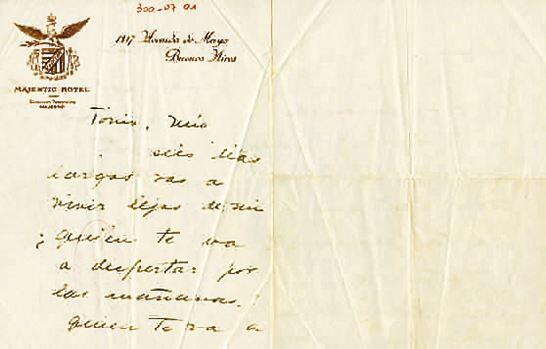 300-07 01
1317 Avenida de Mayo
Buenos Aires
MAJESTIC HOTEL
Tonio, mio
seis dias
largos vas a
vivir lejos de mi
¿quien te va
a despertar por
las mañanas?
quien te va a